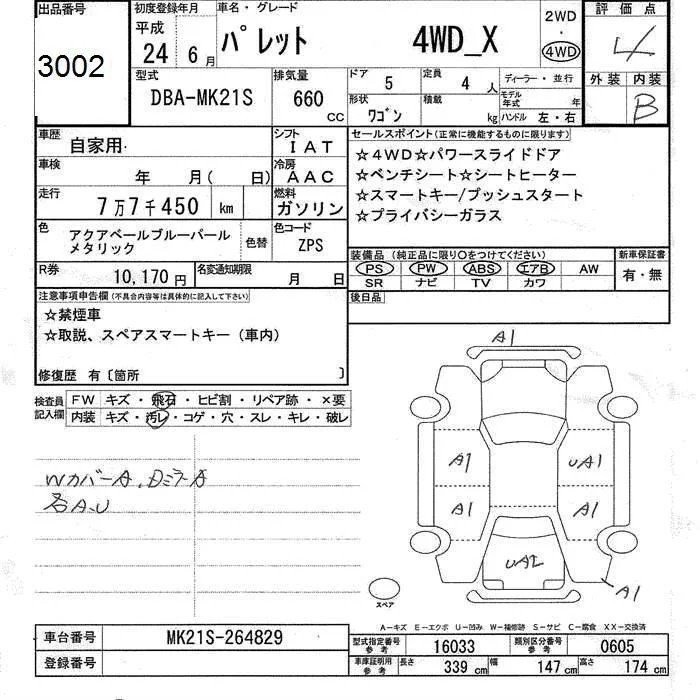 出品番号 初度登録年月 車名・グレード 評価点
3002 平成 24 6月 パレット 4WD_X 2WD ・ 4WD 4
外装 内装
B
型式 排気量 ドア 定員 ディーラー・並行
DBA-MK21S 660 cc 5 4 人 モデル年式 年
形状 ワゴン 積載 kg ハンドル 左・右
車歴 自家用 シフト IAT セールスポイント(正常に機能するものに限ります)
車検 年 月( 日) 冷房 AAC ☆4WD☆パワースライドドア
☆ベンチシート☆シートヒーター
走行 7万7千450 km 燃料 ガソリン ☆スマートキー/プッシュスタート
☆プライバシーガラス
色 アクアベールブルーパール 色替 色コード
メタリック ZPS
装備品(純正品に限り○をつけてください) 新車保証書
R券 10,170円 名変通知期限 月 日 PS PW ABS エアB AW 有・無
SR ナビ TV カワ
注意事項申告欄(不具合内容等は具体的に記入して下さい) 後日品
☆禁煙車
☆取説、スペアスマートキー(車内)
修復歴 有〔箇所 〕
検査員記入欄 FW キズ・飛石・ヒビ割・リペア跡・×要
内装 キズ・汚レ・コゲ・穴・スレ・キレ・破レ
WカバーA、DミラーA
各A、U
A1
A1 UA1
A1 A1
UA2
A1
スペア
A-キズ E-エクボ U-凹み W-補修跡 S-サビ C-腐食 XX-交換済
車台番号 MK21S-264829 型式指定番号 参考 16033 類別区分番号 参考 0605
登録番号 車庫証明用 参考 長さ 339 cm 幅 147 cm 高さ 174 cm